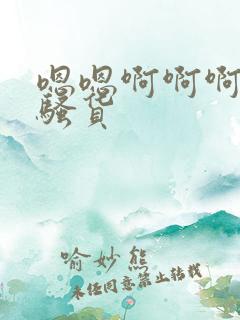 嗯嗯啊啊啊
骚货
喻妙熊
未经同意禁止转载